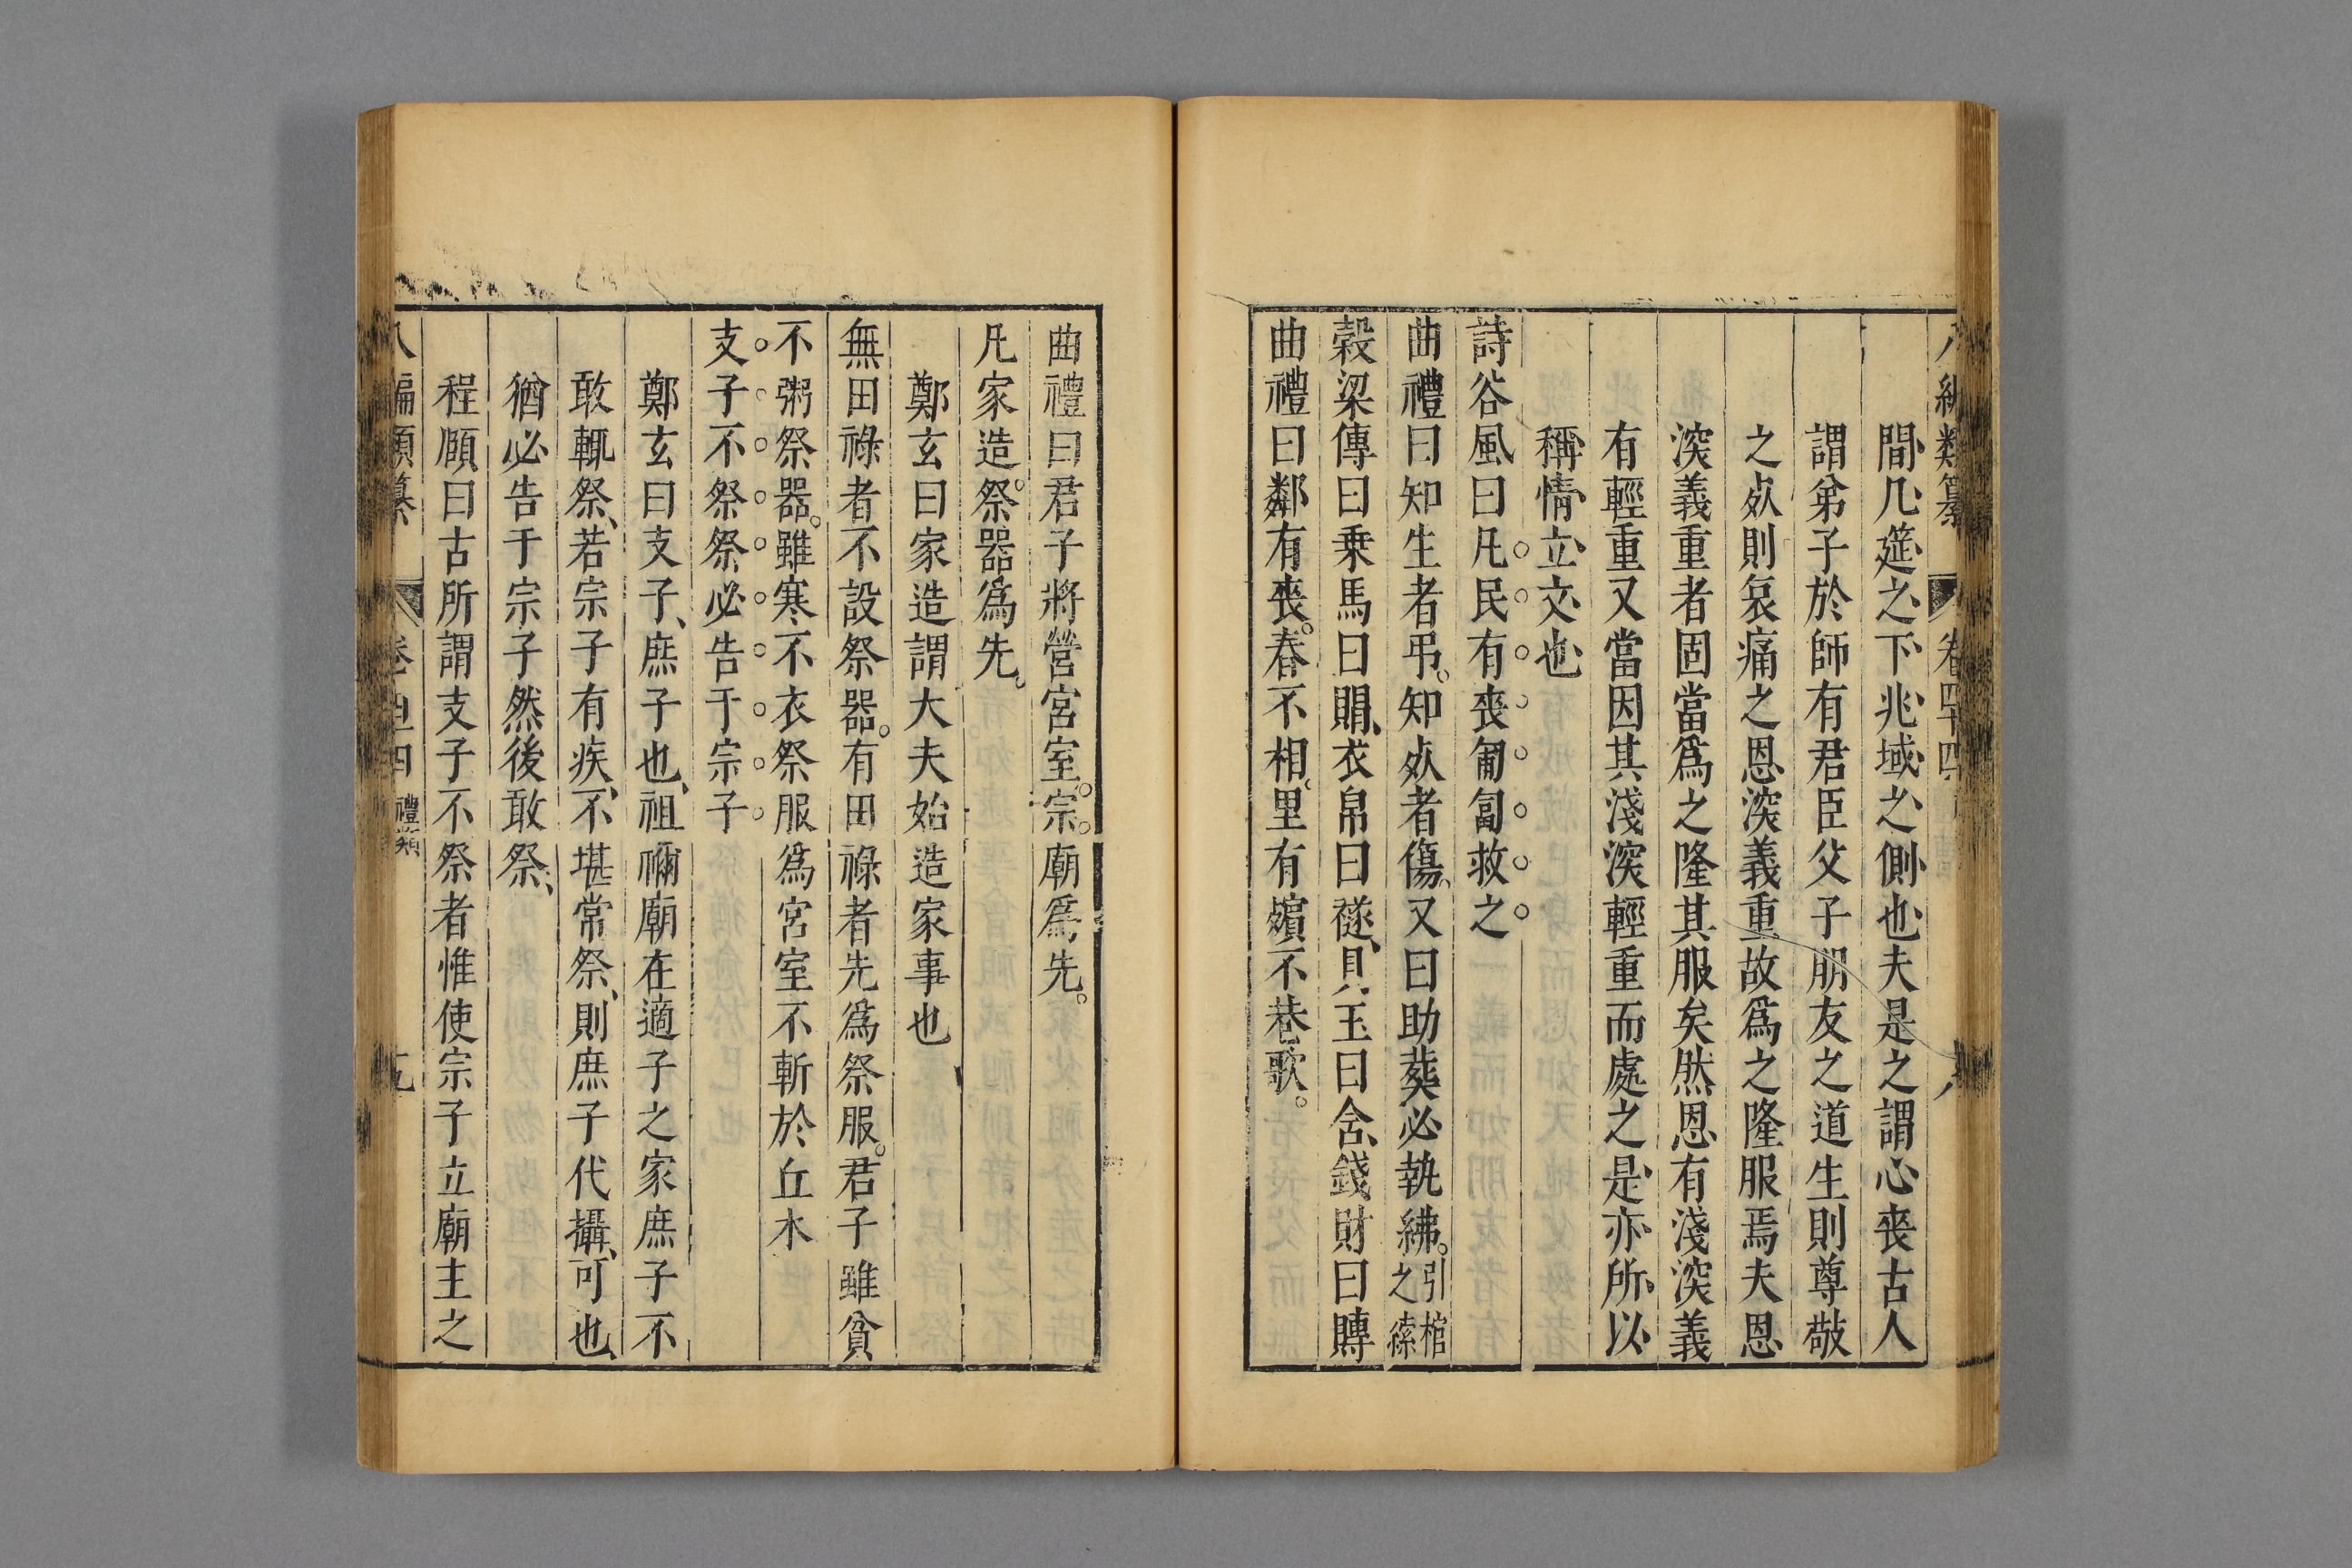 間几筵之下兆域之側也夫是之謂心喪古人
謂弟子於師有君臣父子朋友之道生則尊敬
之㱙則哀痛之恩深義重故爲之隆服焉夫恩
深義重者固當爲之隆其服矣然恩有淺深義
有輕重又當因其淺深輕重而處之是亦所以
稱情立文也
詩谷風曰凡民有喪匍匐救之
曲禮曰知生者弔。知㱙者傷、又曰助葬必執紼。引棺之索
穀梁傳曰乗馬曰賵、衣帛曰襚、貝玉曰含、錢財曰賻
曲禮曰鄰有喪。舂不相。里有殯不巷歌。
曲禮曰君子將營宮室。宗。廟爲先。
凡家造。祭器爲先。
鄭玄曰家造謂大夫始造家事也
無田祿者不設祭器。有田祿者先爲祭服。君子雖貧
不粥祭器。雖寒不衣祭服爲宮室不斬於丘木
支子不祭祭必告于宗子
鄭玄曰支子、庶子也、祖禰廟在適子之家庶子不
敢輒祭、若宗子有疾、不堪常祭、則庶子代攝、可也、
猶必告于宗子然後敢祭、
程頤曰古所謂支子不祭者惟使宗子立廟主之
八編類纂 卷四十四 禮類